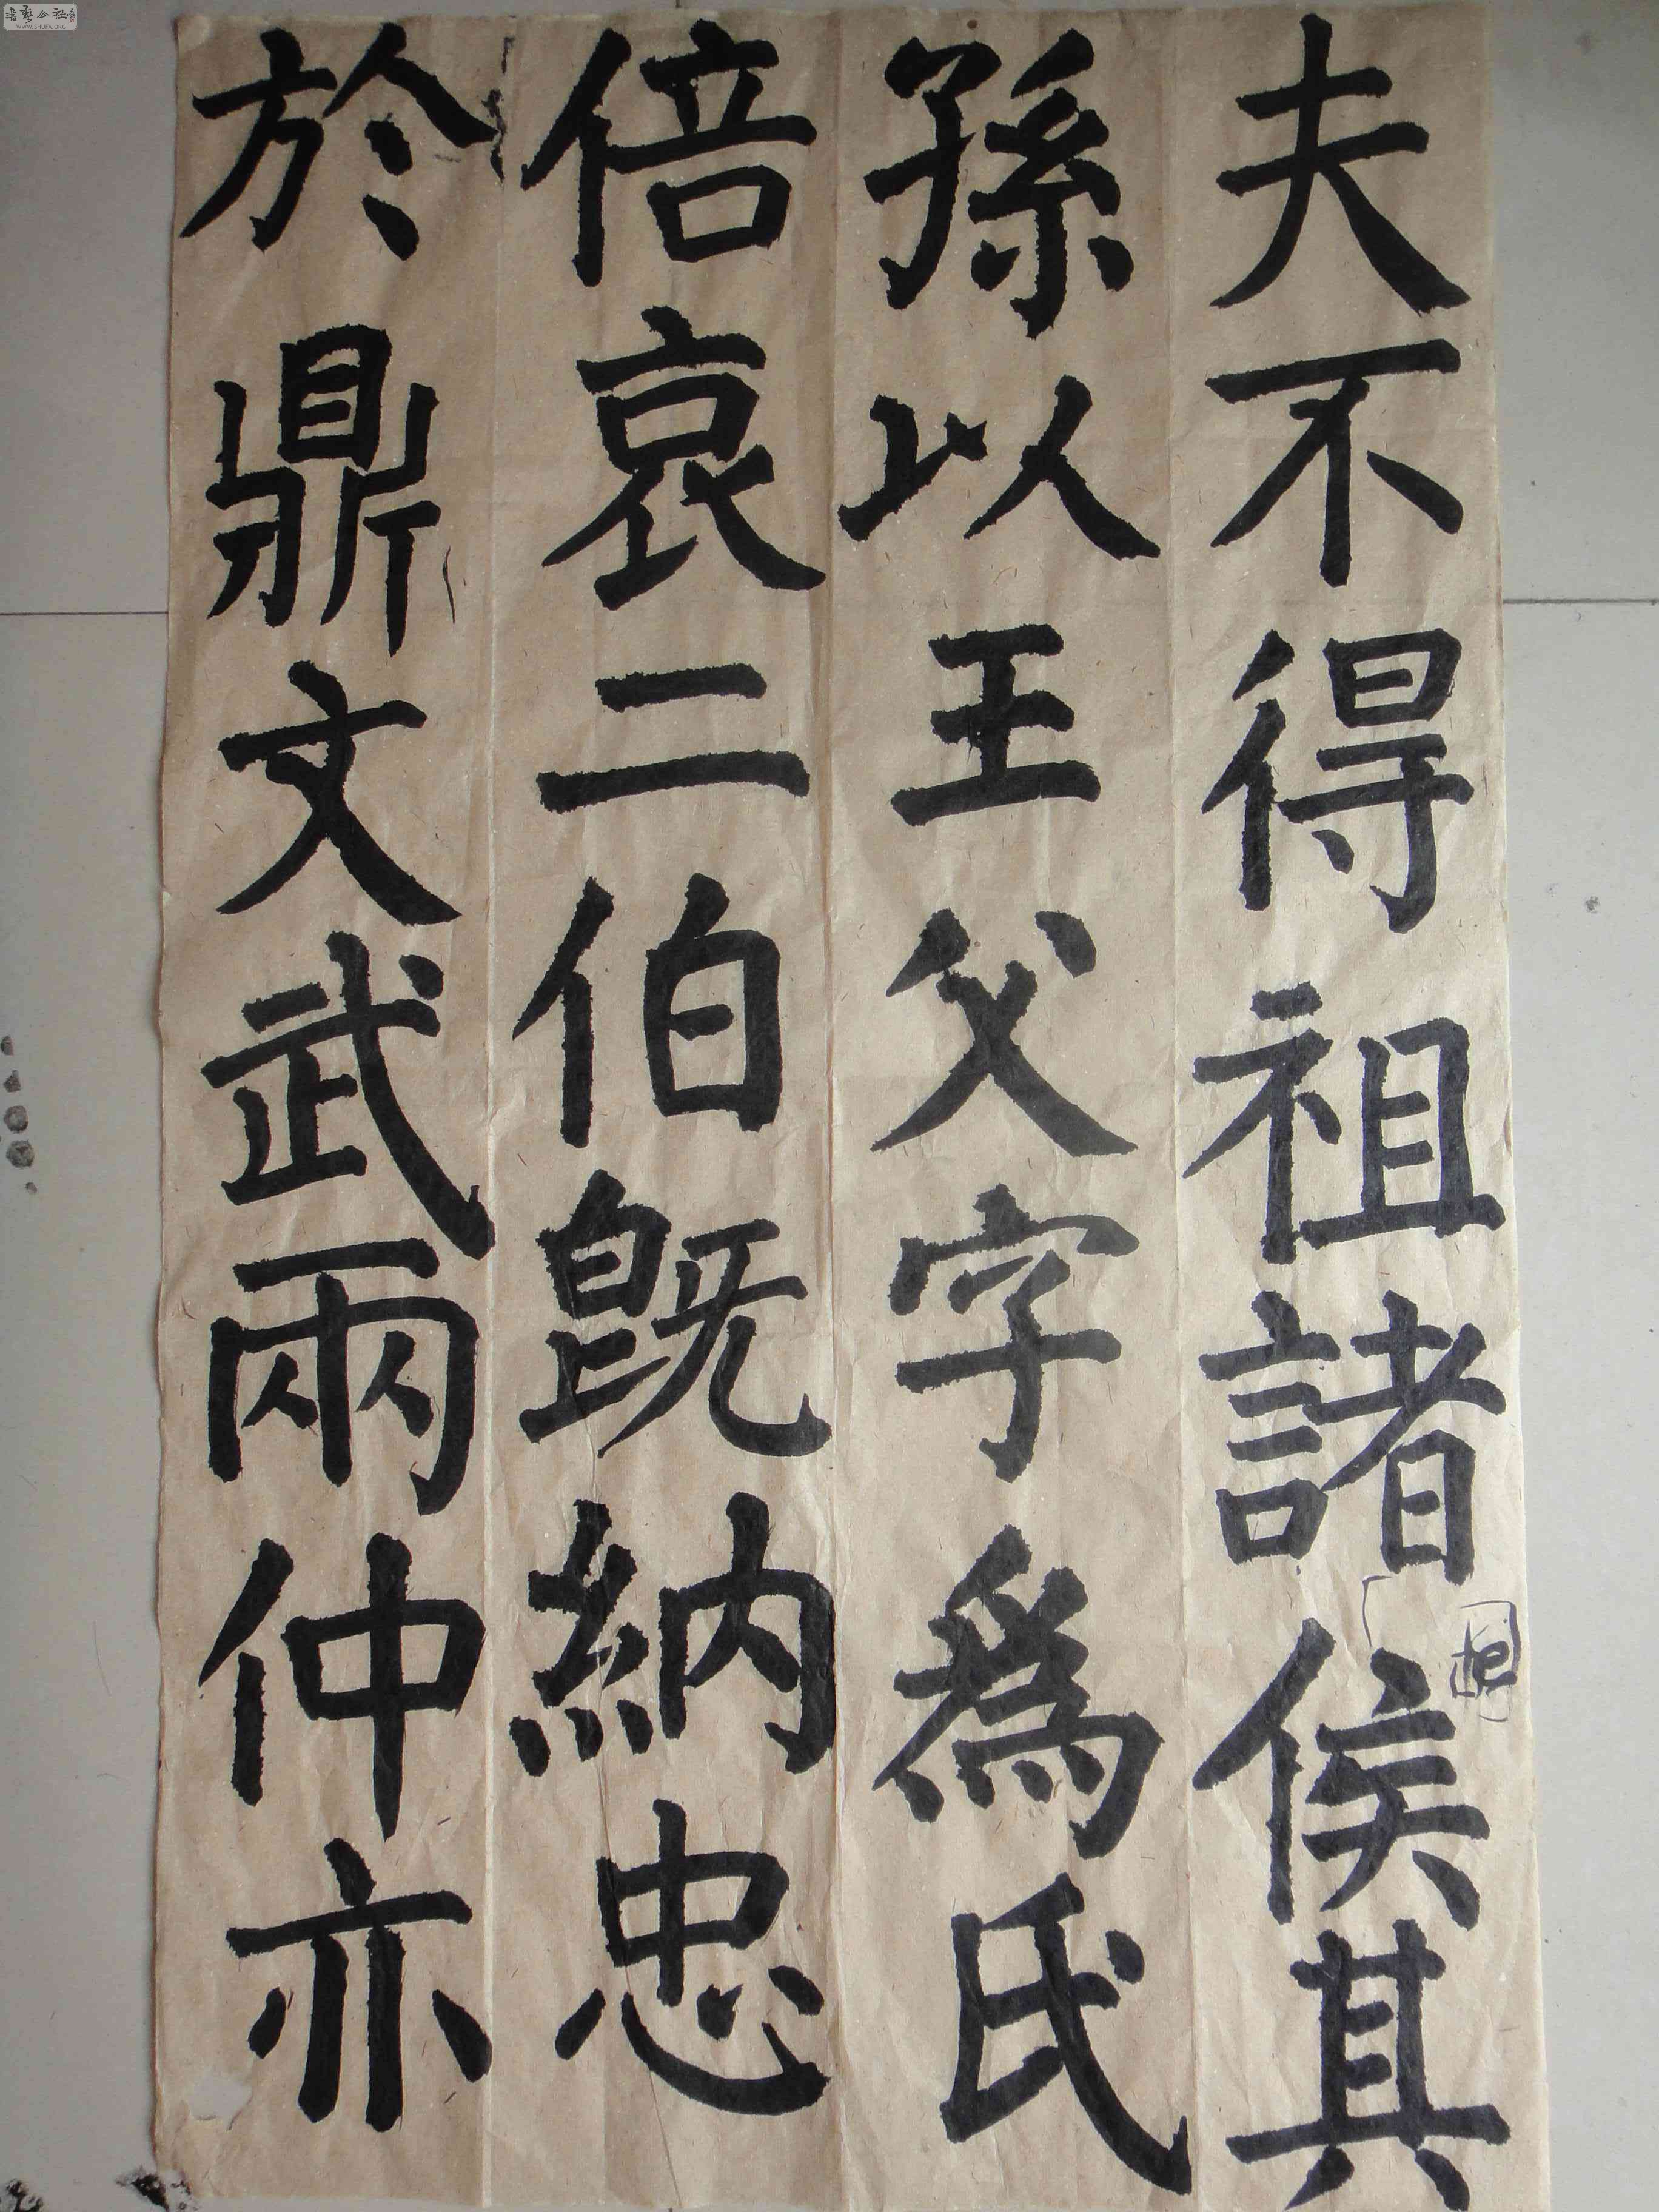 夫不得祖諸侯其
孫以王父字爲氏
倍哀二伯旣納忠
於鼎文武兩仲亦
WWW.SHUFA.ORG